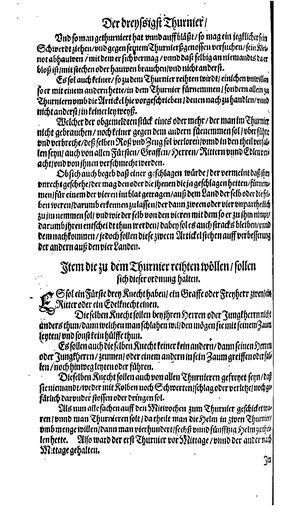 Der dreyssigst Thurnier/
Und so man gethurniert hat unnd auffbläßt/ so mag ein jegklicher sein
Schwerdt ziehen/ und gegen seynem Thurniersgnossen versuchen/ sein Klei-
not abhauwen/ mit dem er sich verwag/ unnd daß selbig an niemandts dar
bloß ist/ mit stechen oder hauwen brauchen/ und nicht anderst.
Es sol auch keiner/ so zu dem Thurnier reihten wirdt/ einichen unwillen
so er mit einem andern hette/ in dem Thurnier fürnemmen/ sondern allein zu
Thurniern umb die Artickel hie vorgeschrieben/ denen nach zu handlen/ unnd
nicht anderst/ in keiner ley weyß.
Welcher der obgemelten stück eines oder mehr/ der man im Thurnier
nicht gebrauchen/ noch keiner gegen dem andern fürnemmen sol/ uberführe
und verbreche/ deß selben Roß und Zeug sol verlorn/ unnd in den theil verfal-
len seyn/ auch von allen Fürsten/ Graffen/ Herren/ Rittern unnd Edlen ver-
acht/ und von ihnen verschmecht werden.
Ob sich auch begeb daß einer geschlagen würde/ der vermeint daß ihm
unrecht geschehe/ der mag den oder die ihenen die jn geschlagen hetten/ fürnem-
men/ für einem der vier
zu im nemmen sol/ und wie der selb von den vieren mit dem so er zu ihm nimpt/
darumb ihren entscheid thun werden/ dabey sol es auch stracks bleiben/ unnd
dem nachkommen/ jedoch sollen diese zween Artickel stehen auff verbesserung
der andern auß den vier Landen.
Item die zu dem Thurnier reihten wöllen/ sollen
sich dieser ordnung halten.
Es sol ein Fürste drey Knecht haben/ ein Graffe oder Freyherr zween/ ein
Ritter oder ein Edelknecht einen.
Die selben Knecht sollen bey ihren Herren oder Jungkherrn nicht
anders thun/ dann welchen man schlahen wil/ den mögen sie mit seinem Zaum
leyten/ und sonst kein hülffe thun.
Es sollen auch die selben Knecht keiner kein andern/ dann seinen Herren
oder Jungkherrn/ zeumen/ oder einem andern in sein Zaum greiffen oder fal-
len/ noch hinweg leyten oder führen.
Die selben Knecht sollen auch von allen Thurnieren gefreyet seyn/ daß
sie niemandt/ weder mit Kolben noch Schwerten/ schlag oder verletze/ noch ge-
färlich darunder stossen oder dringen sol.
Als nun alle sachen auff den Mittwochen zum Thurnier geschicket wa-
ren/ unnd man Thurnieren solt/ da theilt man die Helm in zween Thurnier/
umb menge willen/ dann man vierhundert/ sechß unnd fünfftzig Helm zu thei-
len hette. Also ward der erst Thurnier vor Mittage/ unnd der ander nach
Mittage gehalten.